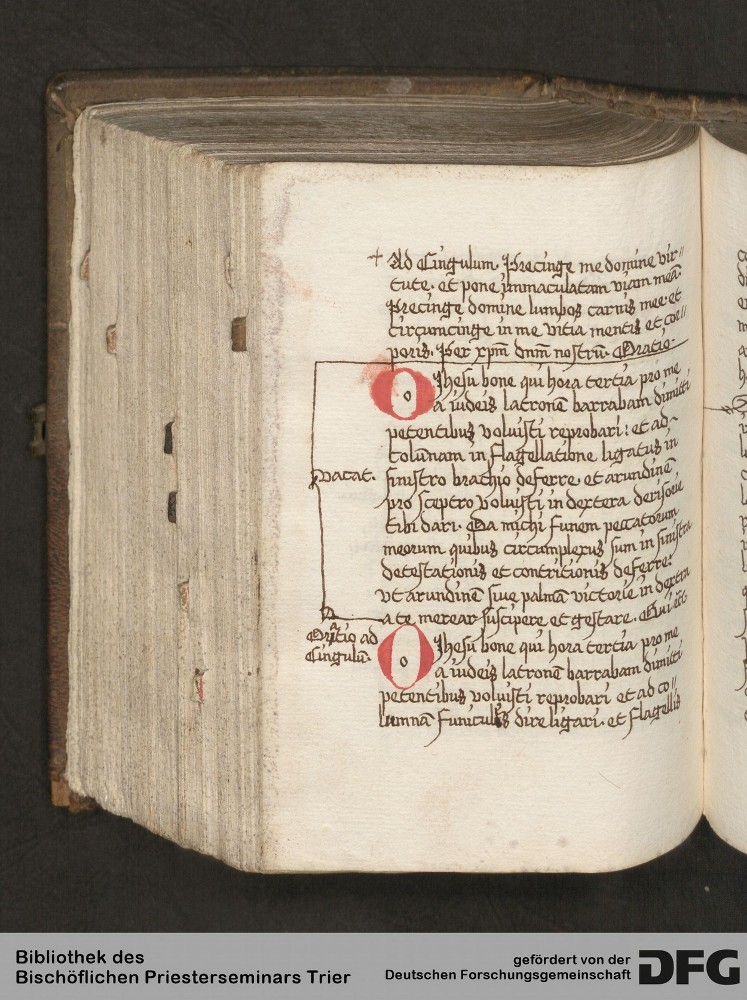 + Ad Cingulum. Precinge me domine vir//
tute. et pone immaculatam viam meā.
Precinge domine lumbos carnis mee. et
circumcinge in me vitia mentis et cor//
poris. Per xpm̄ dnm̄ nostrū. Oratio.
O Jhesu bone qui hora tertia pro me
a iudeis latronē barrabam dimitti
petentibus voluisti reprobari: et ad
columnam in flagellatione ligatus in
vacat. sinistro brachio deferre. et arundinē
pro sceptro voluisti in dextera derisorie
tibi dari. Da michi funem peccatorum
meorum quibus circumplexus sum in sinistra
detestationis et contritionis deferre:
vt arundinē siue palmā victorie in dextra
a te merear suscipere et gestare. Qui
Oratio ad
Cingulū.
O Jhesu bone qui hora tertia pro me
a iudeis latronē barrabam dimitti
petentibus voluisti reprobari et ad co//
lumnā funiculis dire ligari. et flagellis
Bibliothek des
Bischöflichen Priesterseminars Trier
gefördert von der
Deutschen Forschungsgemeinschaft
DFG